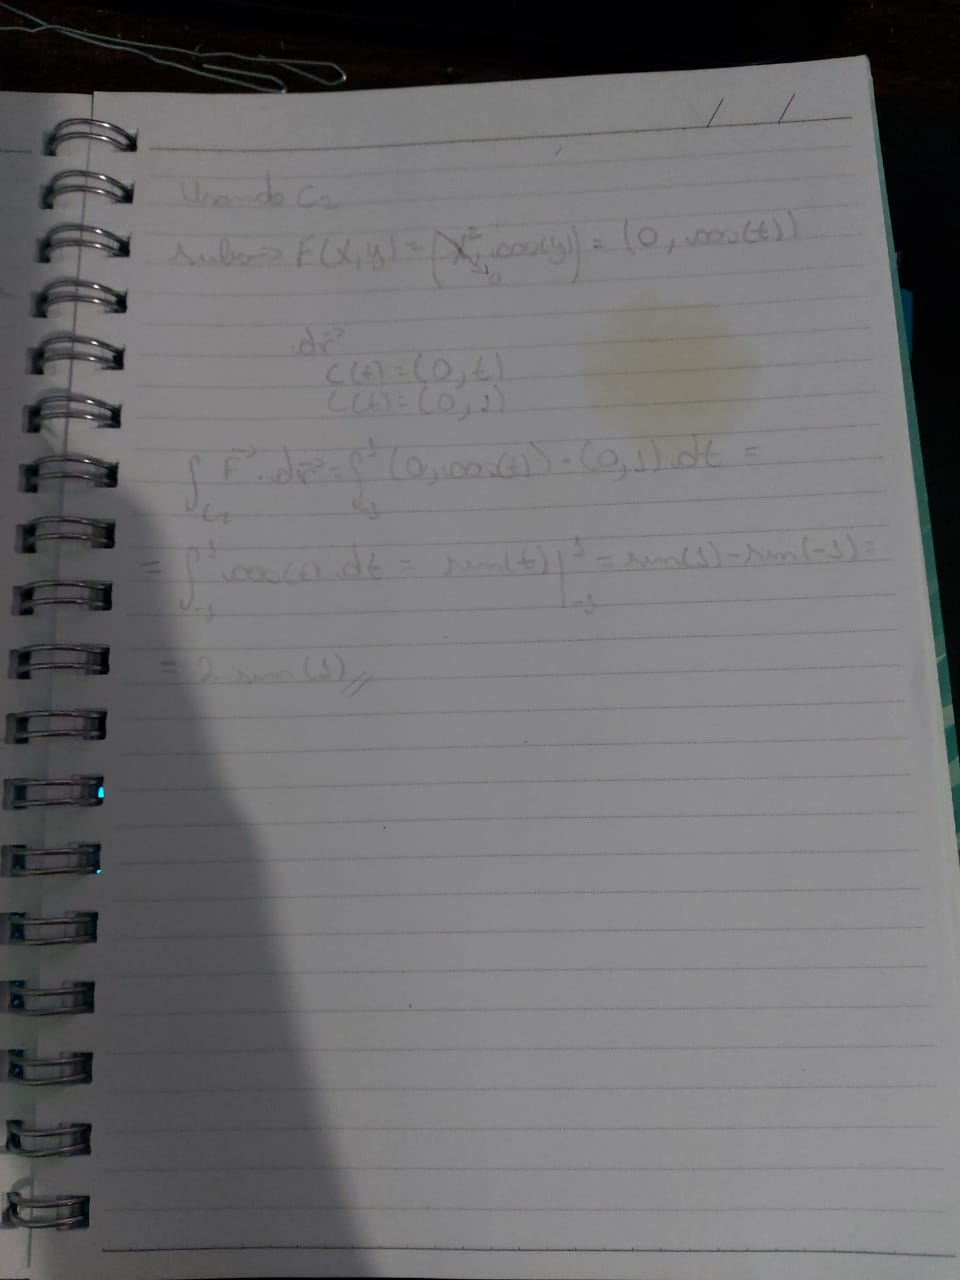 / /
Usando C₂
subs → F(x,y) = (x²→0, cos(y)) = (0, cos(t))
dr⃗
C(t) = (0, t)
C(t) = (0, 1)
∫_C₂ F⃗ . dr⃗ = ∫_-1^1 (0, cos(t)) · (0, 1) dt =
= ∫_-1^1 cos(t) dt = sen(t) |_-1^1 = sen(1) - sen(-1) =
= 2 sen(1) //